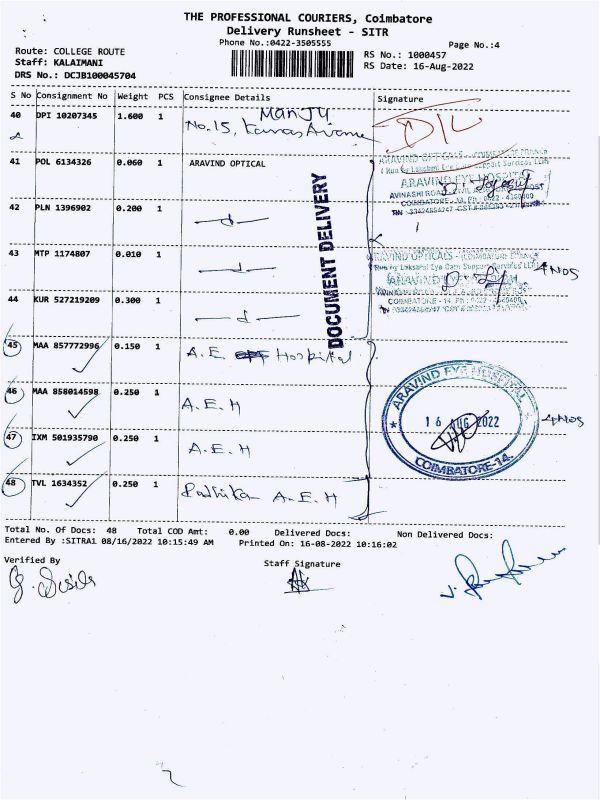 THE PROFESSIONAL COURIERS, Coimbatore
Delivery Runsheet - SITR
Phone No.:0422-3505555
Page No.:4
Route: COLLEGE ROUTE
Staff: KALAIMANI
DRS No.: DCJB100045704
RS No.: 1000457
RS Date: 16-Aug-2022
S No Consignment No Weight PCS Consignee Details Signature
40 DPI 10207345 1.600 1 Manju
No. 15,
41 POL 6134326 0.060 1 ARAVIND OPTICAL
ARAVIND EYE HOSPITAL
42 PLN 1396902 0.200 1 —d—
43 MTP 1174807 0.010 1 —d—
4 NOS
44 KUR 527219209 0.300 1 —d—
DOCUMENT DELIVERY
45 MAA 857772996 0.150 1 A.E Hospital
46 MAA 858014598 0.250 1 A.E.H
47 IXM 501935790 0.250 1 A.E.H
48 TVL 1634352 0.250 1 A.E.H
ARAVIND EYE HOSPITAL
16 AUG 2022
COIMBATORE-14.
4 NOS
Total No. Of Docs: 48 Total COD Amt: 0.00 Delivered Docs: Non Delivered Docs:
Entered By :SITRA1 08/16/2022 10:15:49 AM Printed On: 16-08-2022 10:16:02
Verified By
Staff Signature